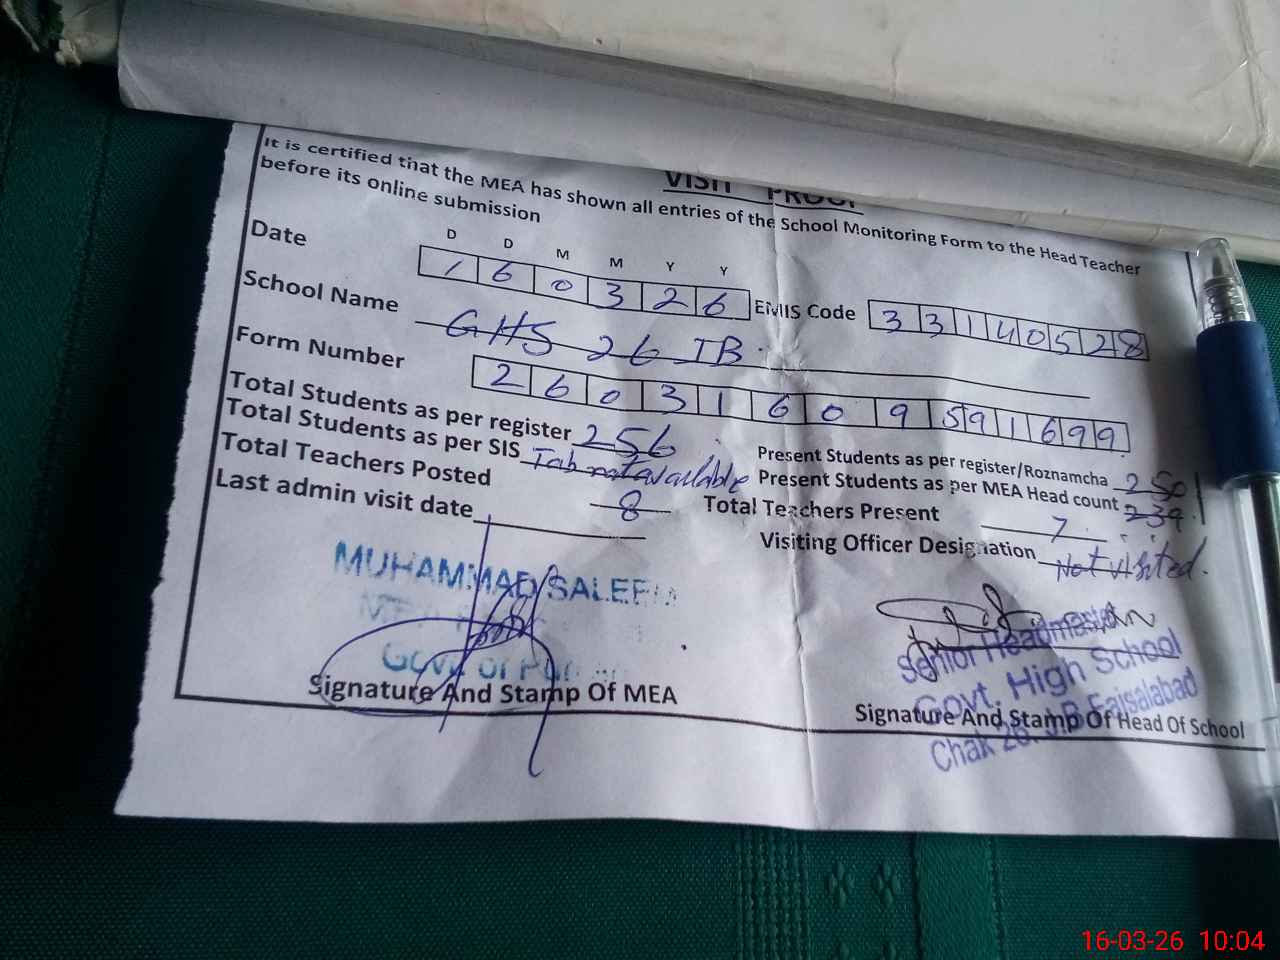 VISIT PROOF
It is certified that the MEA has shown all entries of the School Monitoring Form to the Head Teacher
before its online submission
D D M M Y Y
Date 160326 EMIS Code 33140528
School Name GHS 26 JB
Form Number 26031609591699
Total Students as per register 256 Present Students as per register/Roznamcha 250
Total Students as per SIS Tab not available Present Students as per MEA Head count 239
Total Teachers Posted 8 Total Teachers Present 7
Last admin visit date Visiting Officer Designation Not visited.
MUHAMMAD SALEEM
Govt of
Signature And Stamp Of MEA
Senior Headmaster
Govt. High School
Chak 26 J.B Faisalabad
Signature And Stamp Of Head Of School
16-03-26 10:04